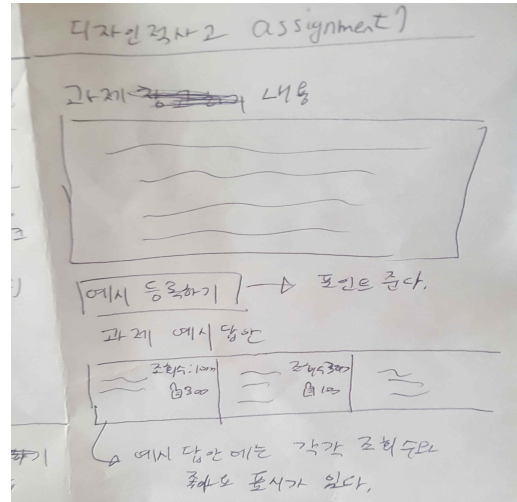 디자인적사고 assignment1
과제 내용
예시 등록하기 → 포인트 준다.
과제 예시 답안
조회수:1000
300
조회수300
100
예시 답안에는 각각 조회수와
좋아요 표시가 있다.